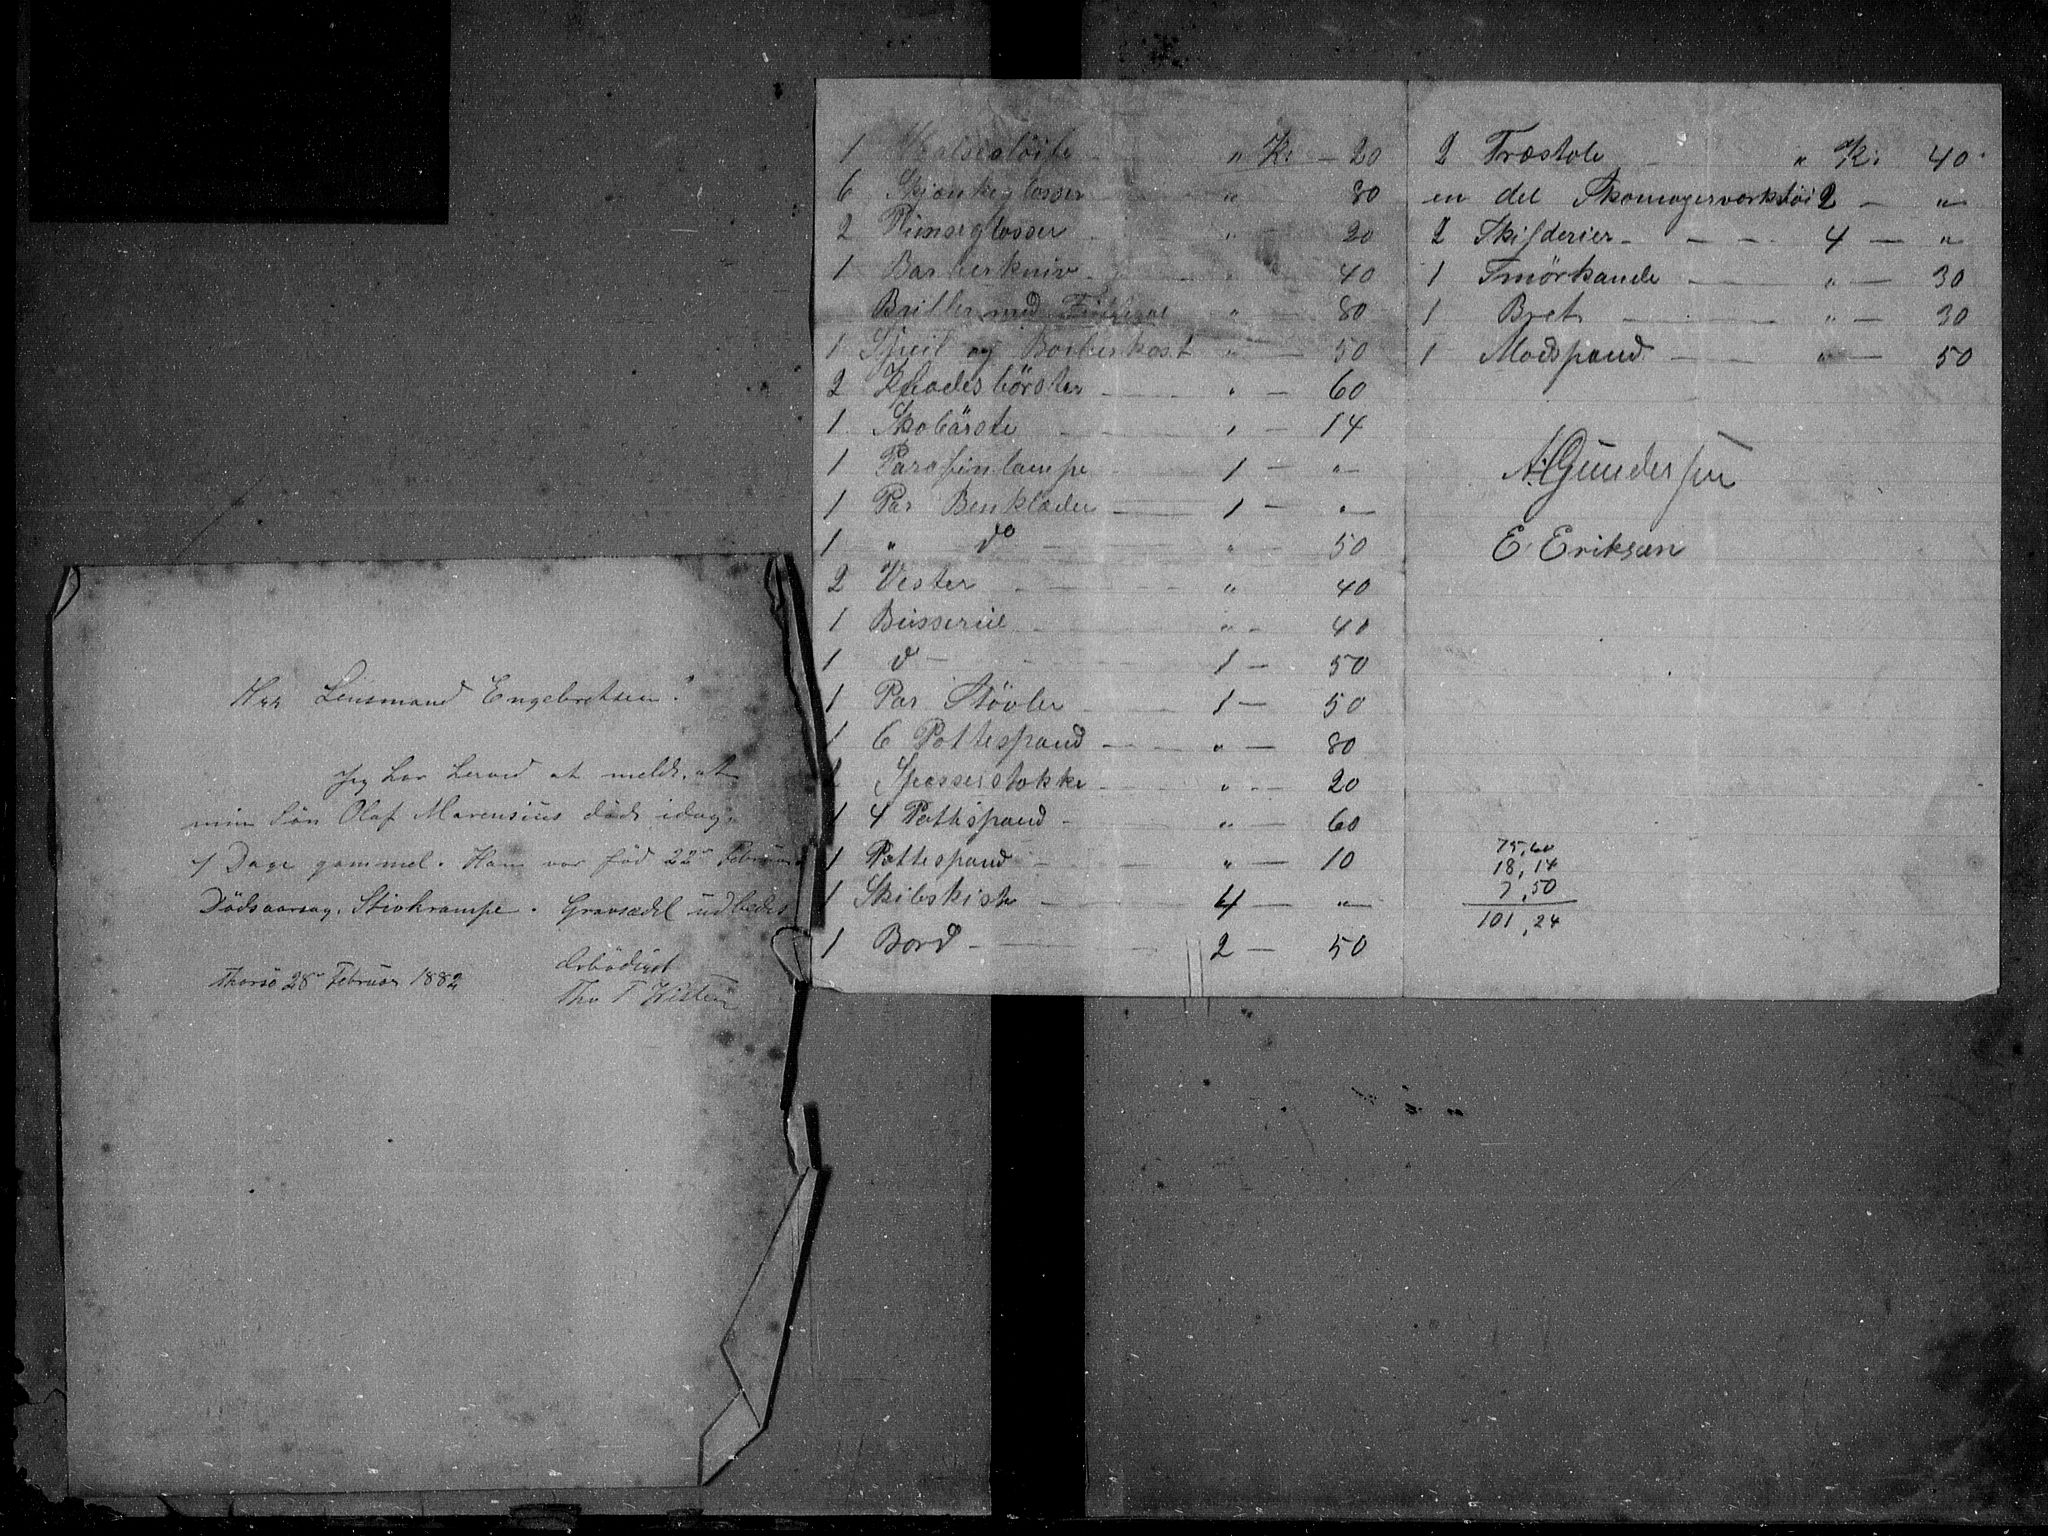 Hrr Lensmand Engebretsen!
Jeg har herved at melde, at
min Søn Olaf Marensius døde idag,
7 Dage gammel. Han var fød 22de Februar.
Dødsaarsag, Stivkrampe. Gravsedel udbedes
Ærbødigst
Thorsø 28de Februar 1882
Tho T
1 Halsesløife „ Kr – 20
6 Skjænkeglasser „ 80
2 glasser „ 20
1 Barberkniv „ 40
Briller med „ – 80
1 Speil og Barberkost „ – 50
2 Klædesbörster „ – 60
1 Skobörste „ – 14
1 Parafinlampe 1 – „
1 Par Benklæder 1 – „
1 „ do „ 50
2 Vester „ 40
1 Busserul „ – 40
1 do 1 – 50
1 Par Støvler 1 – 50
1 6 Pottespand „ – 80
Spasserstokke „ – 20
1 4 Pottespand „ – 60
1 Pottespand „ – 10
1 Skibskiste 4 – „
1 Bord 2 – 50
2 Træstole „ Kr. 40
en del Skomagerværktøi 2 – „
2 Skilderier 4 – „
1 Smörkande „ – 30
1 Bret „ – 30
1 Madspand „ – 50
A. Gundersen
E. Eriksen
75,60
18,14
7,50
101,24